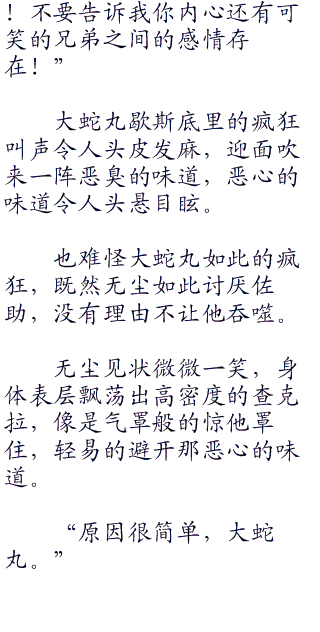 ！不要告诉我你内心还有可
笑的兄弟之间的感情存
在！”
大蛇丸歇斯底里的疯狂
叫声令人头皮发麻，迎面吹
来一阵恶臭的味道，恶心的
味道令人头悬目眩。
也难怪大蛇丸如此的疯
狂，既然无尘如此讨厌佐
助，没有理由不让他吞噬。
无尘见状微微一笑，身
体表层飘荡出高密度的查克
拉，像是气罩般的惊他罩
住，轻易的避开那恶心的味
道。
“原因很简单，大蛇
丸。”